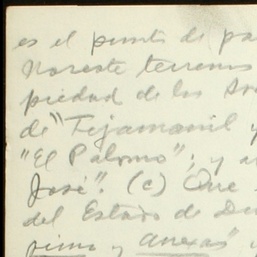 es el punto de pa
Noreste terrenos
piedad de los
de "Tejamanil y
"El Palomo"; y a
José". (c) Que
del Estado de Du
pino y anexas"